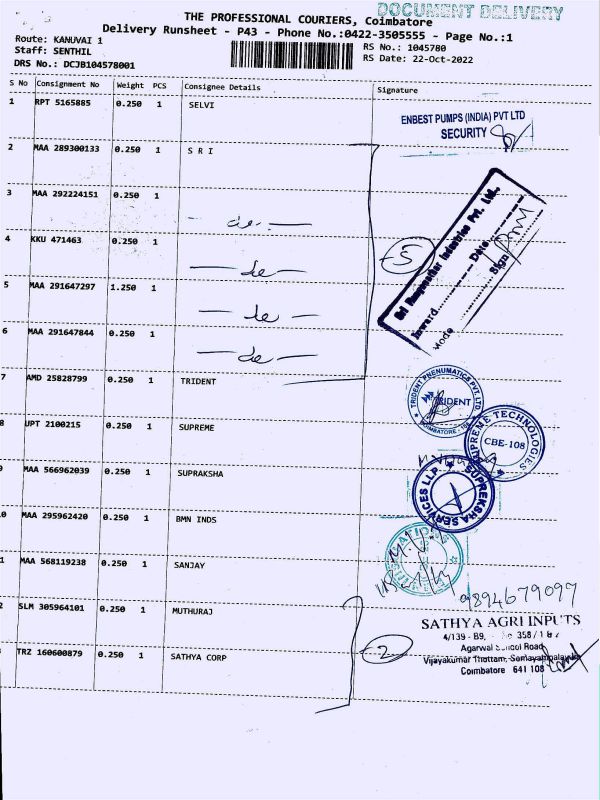 DOCUMENT DELIVERY
THE PROFESSIONAL COURIERS, Coimbatore
Delivery Runsheet - P43 - Phone No.:0422-3505555 - Page No.:1
Route: KANUVAI 1
Staff: SENTHIL
DRS No.: DCJB104578001
RS No.: 1045780
RS Date: 22-Oct-2022
S No Consignment No Weight PCS Consignee Details Signature
1 RPT 5165885 0.250 1 SELVI
ENBEST PUMPS (INDIA) PVT LTD
SECURITY
2 MAA 289300133 0.250 1 S R I
3 MAA 292224151 0.250 1 - do -
4 KKU 471463 0.250 1 - do -
5 MAA 291647297 1.250 1 - do -
6 MAA 291647844 0.250 1 - do -
5
Industries Pvt. Ltd.,
Inward Date
Mode Sign
7 AMD 25828799 0.250 1 TRIDENT
TRIDENT PNENUMATICS PVT. LTD
TRIDENT
COIMBATORE - 108
8 UPT 2100215 0.250 1 SUPREME
SUPREME TECHNOLOGIES
CBE-108
9 MAA 566962039 0.250 1 SUPRAKSHA
SUPREKSHA SERVICES LLP
0 MAA 295962420 0.250 1 BMN INDS
1 MAA 568119238 0.250 1 SANJAY
9894679097
2 SLM 305964101 0.250 1 MUTHURAJ
SATHYA AGRI INPUTS
4/139 - B9, 358 / 1 &
Agarwal School Road,
Vijayakumar Thottam, Somayampalayam
Coimbatore 641 108
TRZ 160600879 0.250 1 SATHYA CORP
2